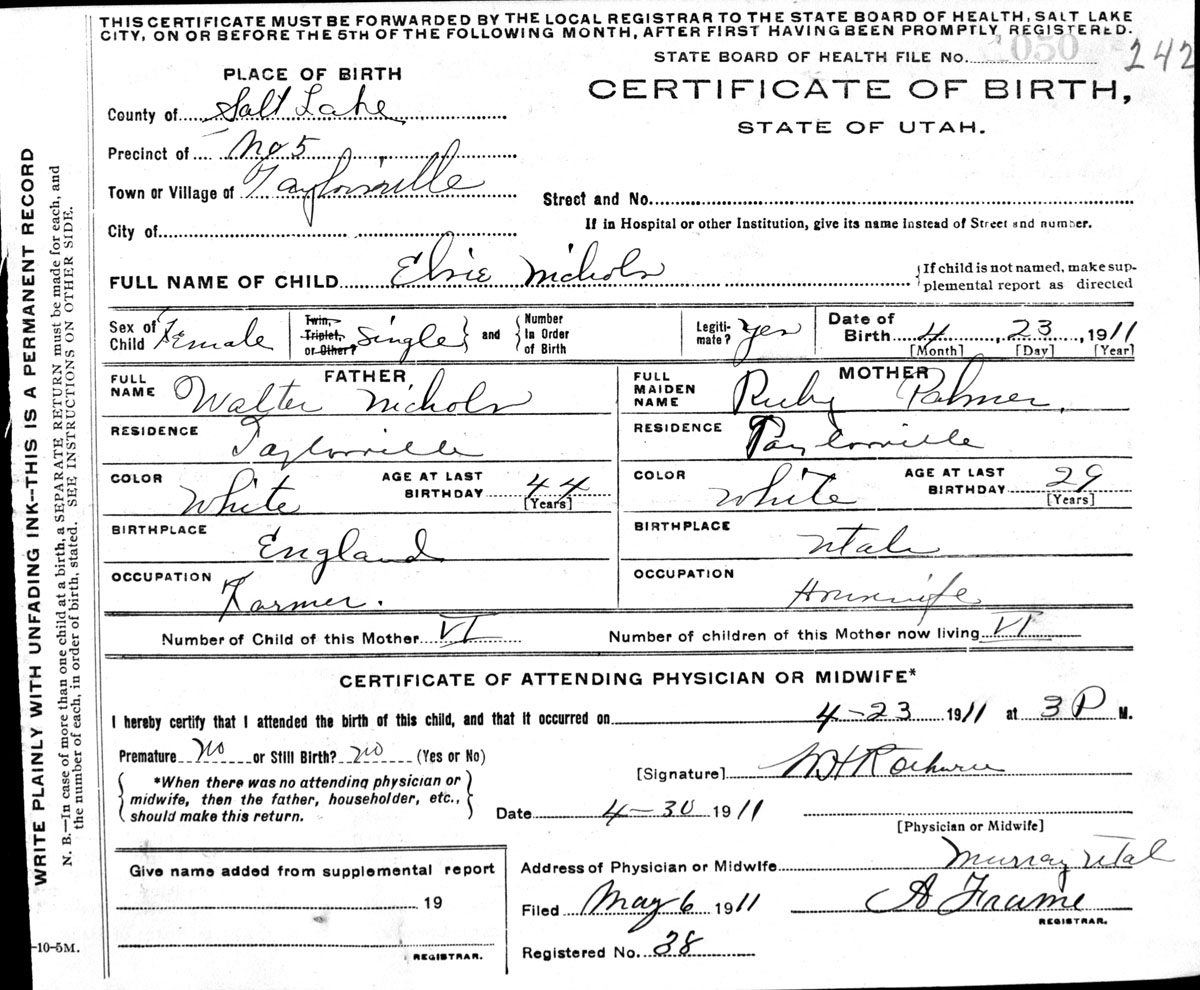 THIS CERTIFICATE MUST BE FORWARDED BY THE LOCAL REGISTRAR TO THE STATE BOARD OF HEALTH, SALT LAKE
CITY, ON OR BEFORE THE 5TH OF THE FOLLOWING MONTH, AFTER FIRST HAVING BEEN PROMPTLY REGISTERED.
STATE BOARD OF HEALTH FILE No. 1050 242
PLACE OF BIRTH
CERTIFICATE OF BIRTH,
STATE OF UTAH.
County of Salt Lake
Precinct of No 5
Town or Village of Taylorsville
Street and No.
City of
If in Hospital or other Institution, give its name instead of Street and number.
FULL NAME OF CHILD Elsie Nichols
If child is not named, make sup-
plemental report as directed
Sex of Child Female
Twin, Triplet, or Other? Single and Number In Order of Birth
Legiti-mate? Yes
Date of Birth 4, 23, 1911
[Month] [Day] [Year]
FATHER
FULL NAME Walter Nichols
RESIDENCE Taylorsville
COLOR White AGE AT LAST BIRTHDAY 44 [Years]
BIRTHPLACE England
OCCUPATION Farmer.
MOTHER
FULL MAIDEN NAME Ruby Palmer,
RESIDENCE Taylorsville
COLOR White AGE AT LAST BIRTHDAY 29 [Years]
BIRTHPLACE Utah
OCCUPATION Housewife
Number of Child of this Mother VI Number of children of this Mother now living VI
CERTIFICATE OF ATTENDING PHYSICIAN OR MIDWIFE*
I hereby certify that I attended the birth of this child, and that it occurred on 4-23 1911 at 3 P M.
Premature no or Still Birth? no (Yes or No)
*When there was no attending physician or
midwife, then the father, householder, etc.,
should make this return.
[Signature] W H
Date 4-30 1911
[Physician or Midwife]
Give name added from supplemental report
19
REGISTRAR.
Address of Physician or Midwife Murray Utah
Filed May 6 1911 A Frame
REGISTRAR.
Registered No. 38
WRITE PLAINLY WITH UNFADING INK--THIS IS A PERMANENT RECORD
N. B.—In case of more than one child at a birth, a SEPARATE RETURN must be made for each, and
the number of each, in order of birth, stated. SEE INSTRUCTIONS ON OTHER SIDE.
-10-5M.